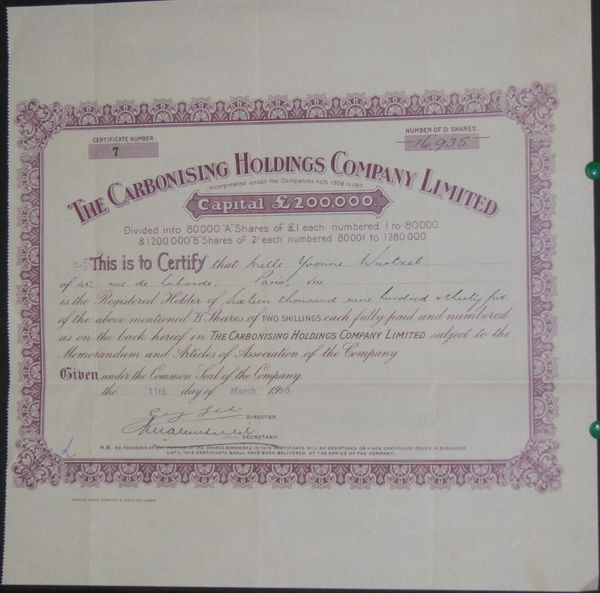 CERTIFICATE NUMBER
7
NUMBER OF B SHARES
16,935
THE CARBONISING HOLDINGS COMPANY LIMITED
Incorporated under the Companies Acts, 1908 to 1917
Capital £200,000.
Divided into 80,000 "A" Shares of £1 each numbered 1 to 80000.
& 1,200,000 "B" Shares of 2s each numbered 80001 to 1280000.
This is to Certify that Melle Yvonne Wurtzel
of 40, rue de Laborde, Paris,
is the Registered Holder of Sixteen thousand nine hundred & thirty five
of the above mentioned "B" Shares of TWO SHILLINGS each fully paid and numbered
as on the back hereof in THE CARBONISING HOLDINGS COMPANY LIMITED subject to the
Memorandum and Articles of Association of the Company.
Given under the Common Seal of the Company.
the 11th day of March 1930
DIRECTOR.
SECRETARY.
N.B. NO TRANSFER OF ANY PORTION OF THE SHARES COMPRISED IN THIS CERTIFICATE WILL BE REGISTERED OR A NEW CERTIFICATE ISSUED IN EXCHANGE
UNTIL THIS CERTIFICATE SHALL HAVE BEEN DELIVERED AT THE OFFICE OF THE COMPANY.